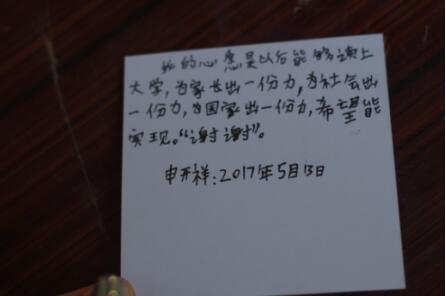 我的心愿是以后能够读上
大学，为家长出一份力，为社会出
一份力，为国家出一份力，希望能
实现。“谢谢”。
申开祥：2017年5月13日